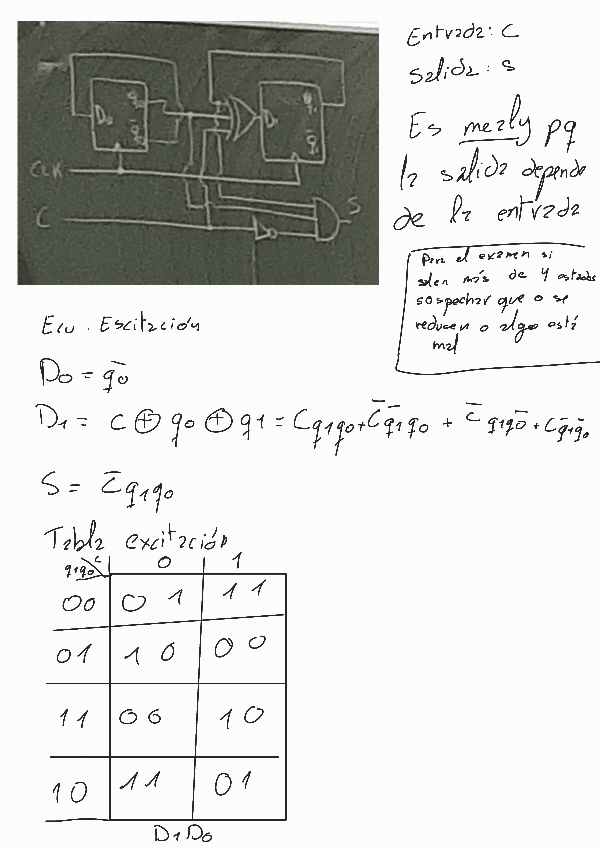 Entrada: C
Salida: S
Es mealy pq
la salida depende
de la entrada
Para el examen si
salen más de 4 estados
sospechar que o se
reducen o algo está
mal
D0
q0
q̅0
D1
q1
q̅1
CLK
C
S
Ecu. Escitación
D0 = q̅0
D1 = C ⊕ q0 ⊕ q1 = Cq1q0 + C̅q̅1q0 + C̅q1q̅0 + Cq̅1q̅0
S = C̅q1q0
Tabla excitación
q1q0 C 0 1
00 01 11
01 10 00
11 00 10
10 11 01
D1D0